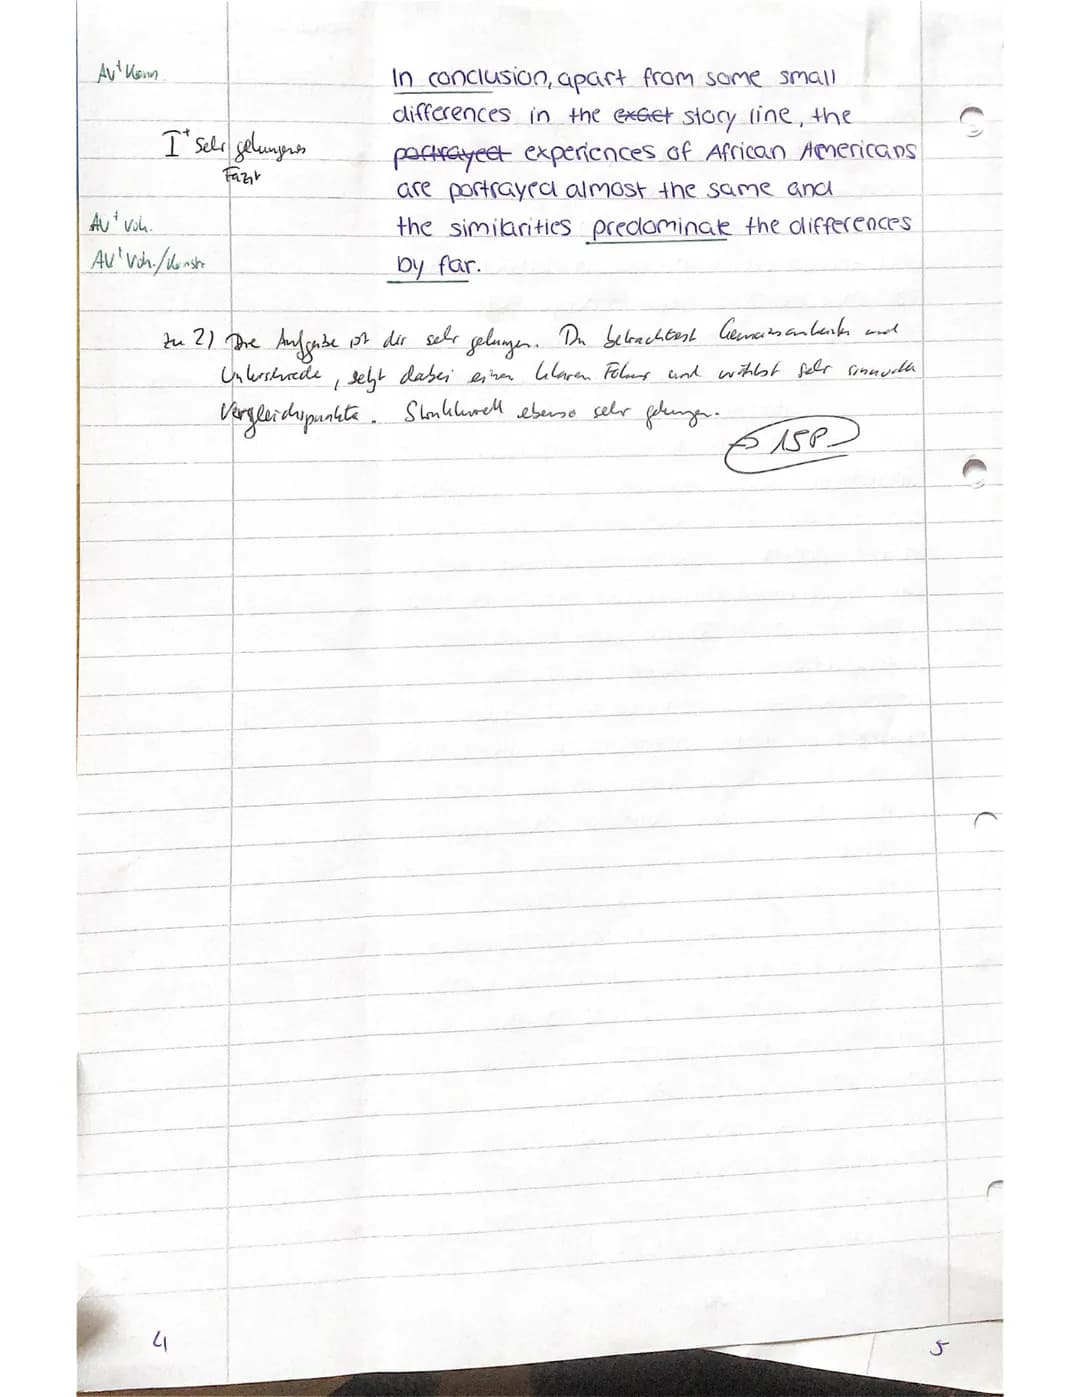 AV⁺ Konn.
In conclusion, apart from some small
differences in the exact story line, the
I⁺ sehr gelungenes
Fazit
portrayed experiences of African Americans
are portrayed almost the same and
AV⁺ Vok.
the similarities predominate the differences
AV⁺ Vok./Konstr.
by far.
zu 2) Die Aufgabe ist dir sehr gelungen. Du betrachtest Gemeinsamkeiten und
Unterschiede, setzt dabei einen klaren Fokus und wählst sehr sinnvolle
Vergleichspunkte. Strukturell ebenso sehr gelungen.
→ 15P.
4
5